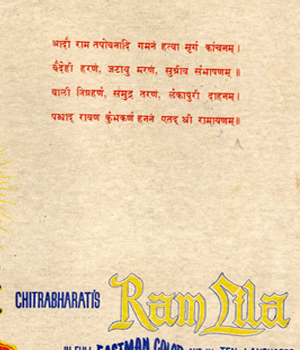 आदौ राम तपोवनादि गमनं हत्वा मृगं कांचनम् ।
वैदेही हरणं, जटायु मरणं, सुग्रीव संभाषणम् ॥
वाली निग्रहणं, समुद्र तरणं, लंकापुरी दाहनम् ।
पश्चाद् रावण कुंभकर्ण हननं एतद् श्री रामायणम् ॥
CHITRABHARATI'S
Ram Lila
IN FULL EASTMAN COLOR AND IN TEN LANGUAGES